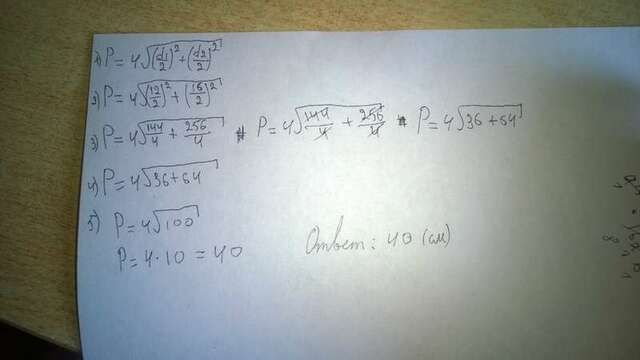 1) P = 4√((d1/2)² + (d2/2)²)
2) P = 4√((12/2)² + (16/2)²)
3) P = 4√(144/4 + 256/4) P = 4√(144/4 + 256/4) P = 4√(36 + 64)
4) P = 4√(36 + 64)
5) P = 4√100
P = 4 · 10 = 40 Ответ: 40 (см)